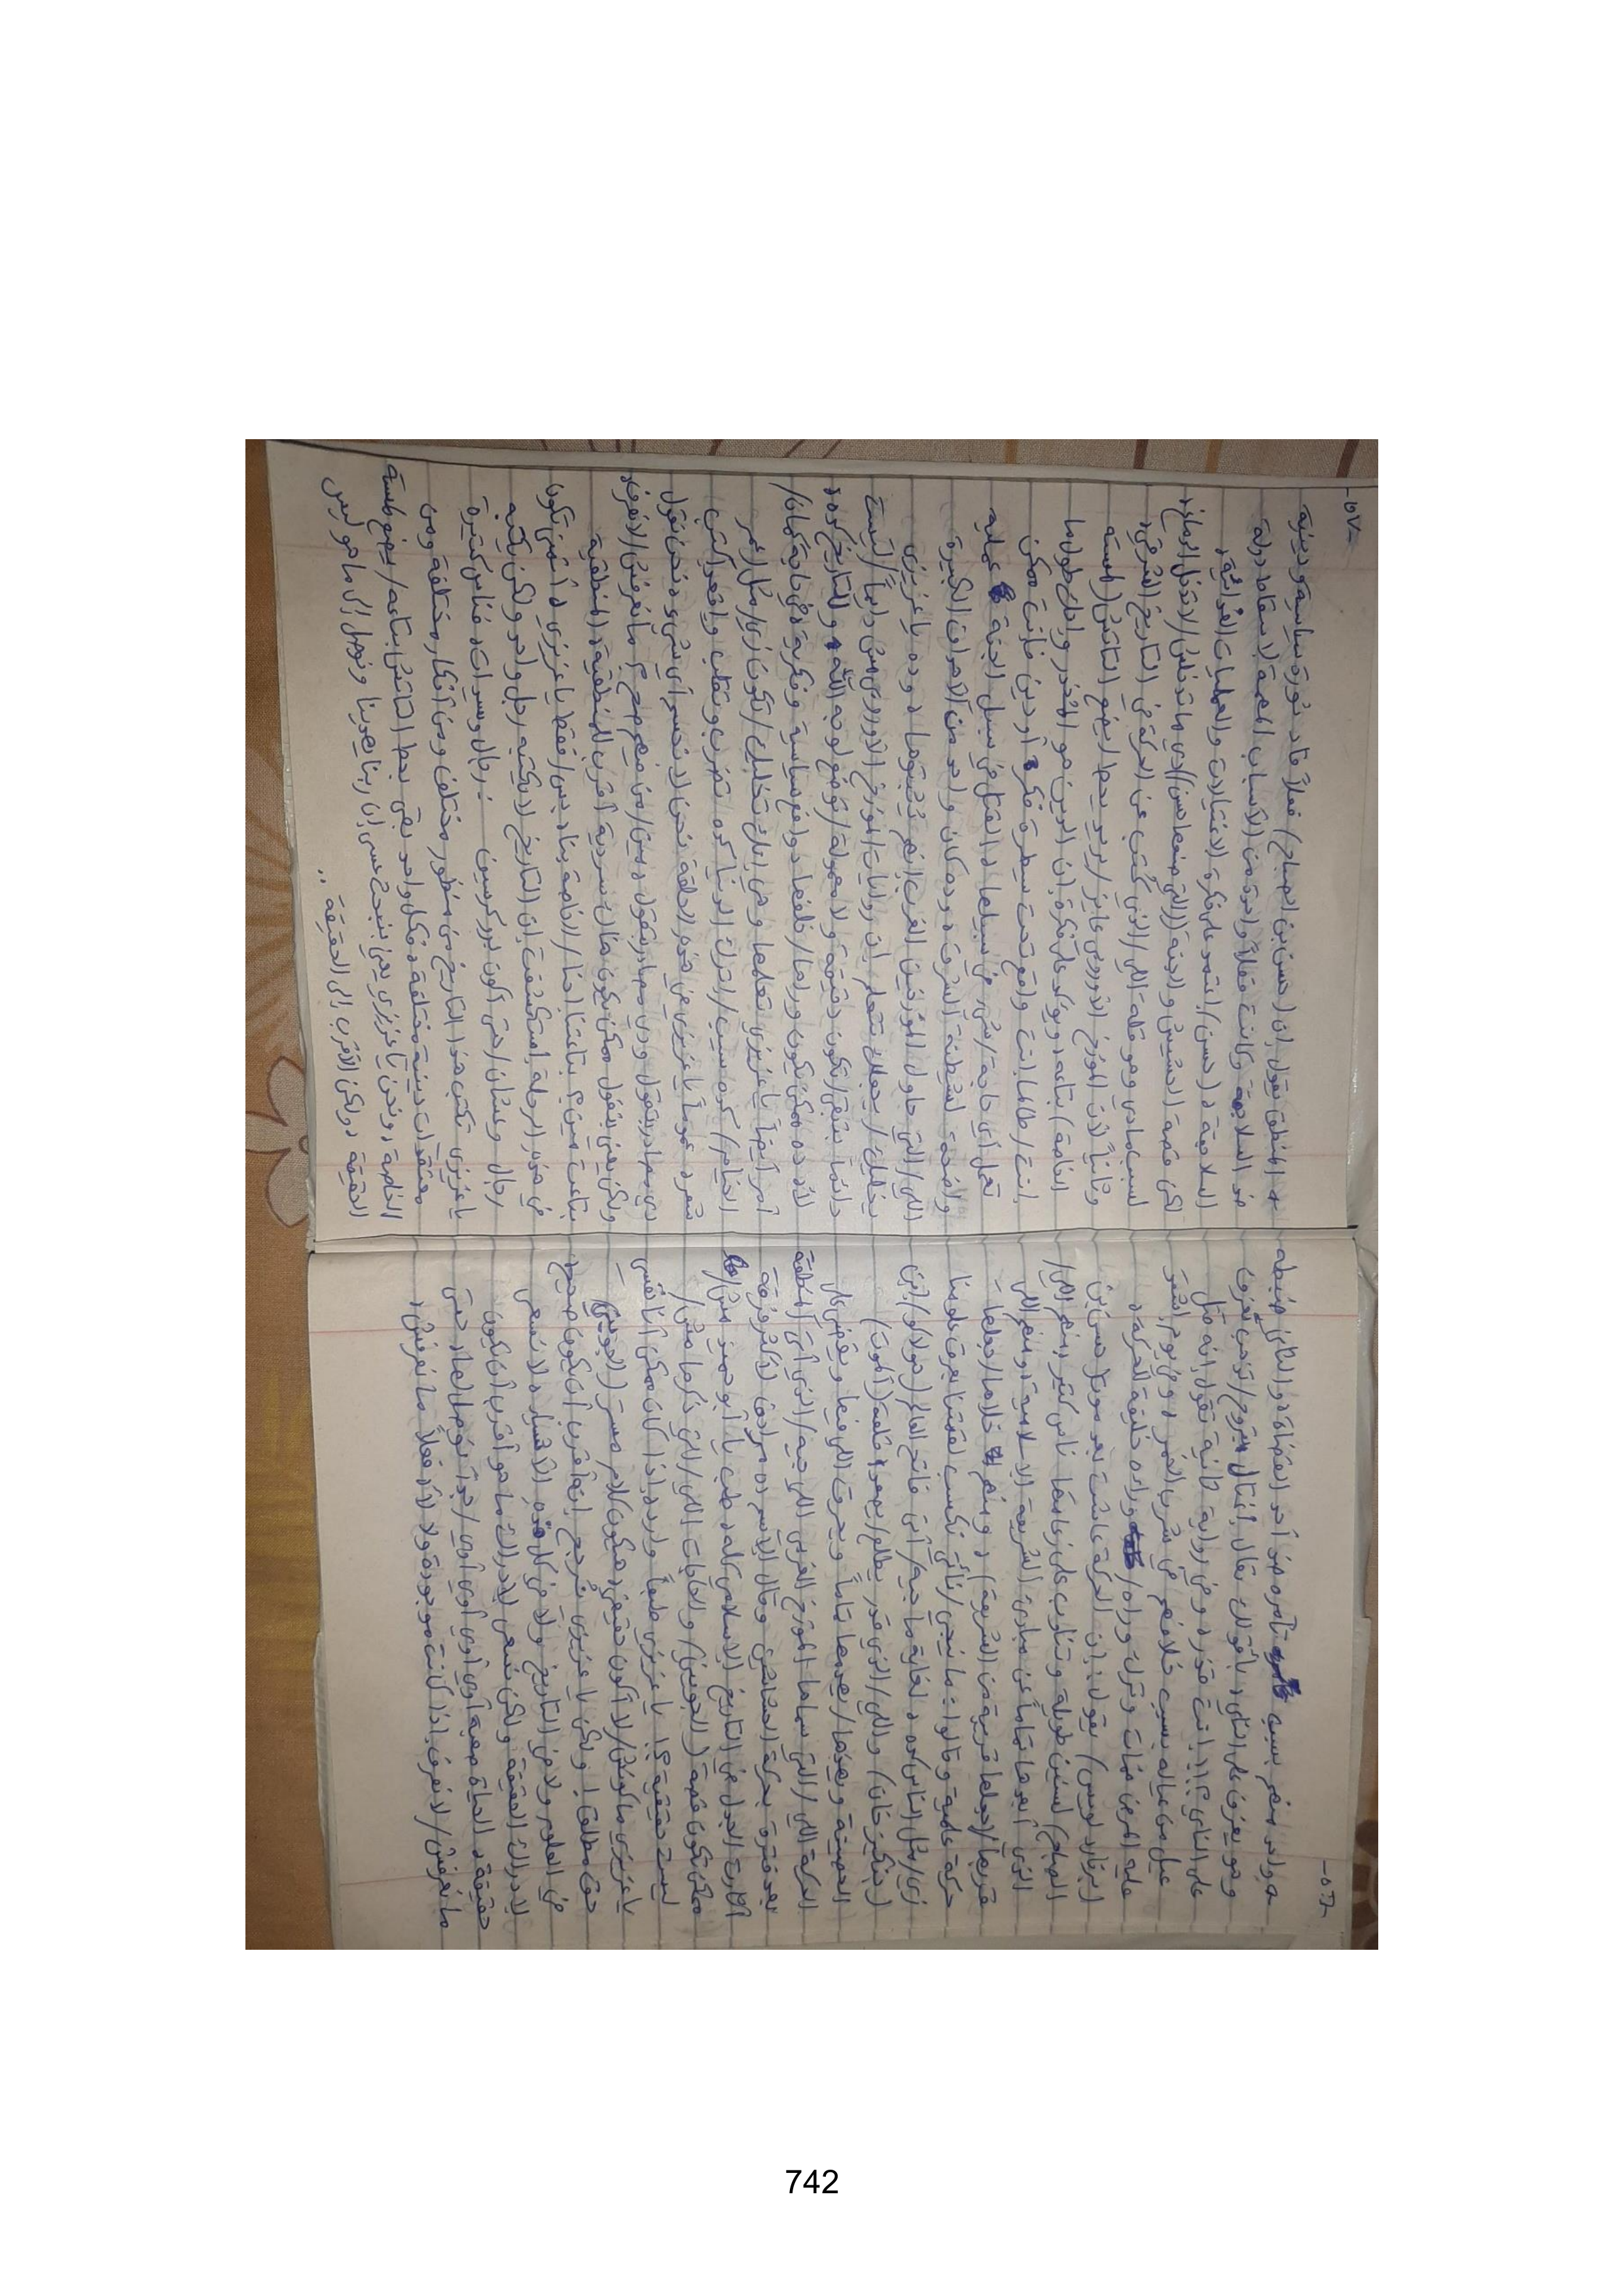 -٥٦-
هو واحد منهم بسبب تآمره ضد أحد القضاة، والتاني ضبطه
وهو يعزف على الناي، بأقولك، تقال اغتال، بتروح/تذهب تعزف
على الناي؟!! انت قذر، وفي رواية تانية تقول إنه قتل
عيل من عياله بسبب خلافهم في شرب الخمر، وفي يوم اشتد
عليه المرض فمات وترك وراه/وراءه خليفة للحركة،
(برنارد لويس) بيقول: إن الحركة عاشت بعد موت (حسن بن
الصباح) لسنين طويلة وتناوب على زعامتها ناس كتير، منهم اللي/
الذي أبعدها تماماً عن مبادئ الشريعة الإسلامية، أو منهم اللي
قربها/جعلها قريبة من الشريعة)، ومنهم خلاها/جعلها
حركة علمية وقالوا: ما نيجي/نأتي نكسب لقمتنا بعرق علومنا
زي/مثل الناس، لغاية ما جيه/أتى فاتح العالم (هولاكو) (ابن
(جنكيز خان) واللي/والذي قدر يطلع/يصعد قلعة (آلموت)
الحصينة ويهدها/يهدمها تماماً ويحرق اللي فيها ويقضي على
الحركة اللي/التي سماها المؤرخ الغربي اللي جيه/الذي أتى المنطقة
بعد فترة بحركة الحشاشين وقال الاسم ده مرادف لأكتر فرقة
أثارت الجدل في التاريخ الإسلامي كله، طب يا أبو حميد مش/
ممكن تكون قصة (الجويني) والحاجات اللي/التي ذكرها مش/
ليست حقيقية؟! يا عزيزي طبعاً وارد، إذا كان ممكن أنا نفسي
يا عزيزي ماكونش/لا أكون حقيقي، هيكون كلام مستر (الجويني)
حق مطلق! ولكن يا عزيزي نرجح إنه أقرب أن يكون صحيح،
في العلوم ولا في التاريخ ولا في كل هذه الأشياء، لا نسعى
لإدراك الحقيقة ولكن نسعى لإدراك ما هو أقرب أن يكون
حقيقة، الحياة صعبة أوي أوي أوي/جداً نوصل لها، حتى
ما نعرفش/لا نعرف إذا كانت موجودة ولا لأ، فعلاً ما نعرفش،
-٥٧-
بالمنطق نقول إن (حسن بن الصباح) فعلاً قاد ثورة سياسية ودينية
ضد السلاجقة وكانت فعلاً واحدة من الأسباب المهمة لإسقاط دولة
السلاجقة، (حسن) اعتمد على فكرة الاغتيالات والعمليات الفدائية،
لكن قصة الحشيش والجنة (اللي منها حسن)/دي ما تدخلش/لا تدخل الدماغ،
لسبب مادي وهو قلة اللي/الذي كُتب عن الحركة في التاريخ الشرقي،
وثانياً لأن المؤرخ الأوروبي عايز/يريد يحط/يضع التاتش (لمسته
الخاصة) بتاعه ويؤكد على فكرة إن الدين هو المُخدر وإنك طول ما
انت/طالما انت واقع تحت سيطرة فكرة أو دين فأنت ممكن
تعمل أي حاجة/شئ في سبيلها، القتل في سبيل الجنة عملية
واضحة لشيطنة الشرق، وده كان واحد من الأهداف الكبيرة
اللي/التي حاول المؤرخين الغرب إنهم يثبتوها، وده يا عزيزي
يخليك/يجعلك تتعلم إن روايات المؤرخ الأوروبي مش دايماً/ليست
دائماً بتبقى/تكون دقيقة ولا معمولة/توضع لوجه الله وللتاريخ كده،
لأ، ده ممكن يكون وراها/خلفها دوافع سياسية وفكرية، في حاجة كمان/
أمر أيضاً يا عزيزي تعلمها وهي إنك تخليك/تكون زي/مثل عمر
الخيام/كده سيب/اترك الدنيا كده تضرب وتقلب واقعد اكتب
شعر، عموماً يا عزيزي في هذه الحلقة نحن لا نحسم أي شئ، نحن نقول
دي مصادر بتقول ودي مصادر بتقول، مين/من فيهم صح؟ ما نعرفش/لا نعرف،
ولكن يعني بنقول ممكن يكون هناك سردية أقرب للمنطقية، المنطقية
بتاعت مين؟ بتاعتنا احنا/الخاصة بنا، بس/فقط يا عزيزي، أتمنى تكون
في هذه الرحلة استكشفت إن التاريخ لا يكتبه رجل واحد ولكن يكتبه
رجال وعشان/حتى أكون فيروركسين: رجال وسيدات، فناس كتيرة
يا عزيزي تكتب هذا التاريخ من منظور مختلف ومن أفكار مختلفة ومن
معتقدات دينية مختلفة، فكل واحد بقى بيحط التاتش بتاعه/يضع لمسته
الخاصة، ونحن يا عزيزي يعني بنبحث عسى إن ربنا يهدينا ونوصل إلى ما هو ليس
الحقيقة، ولكن الأقرب إلى الحقيقة..
742